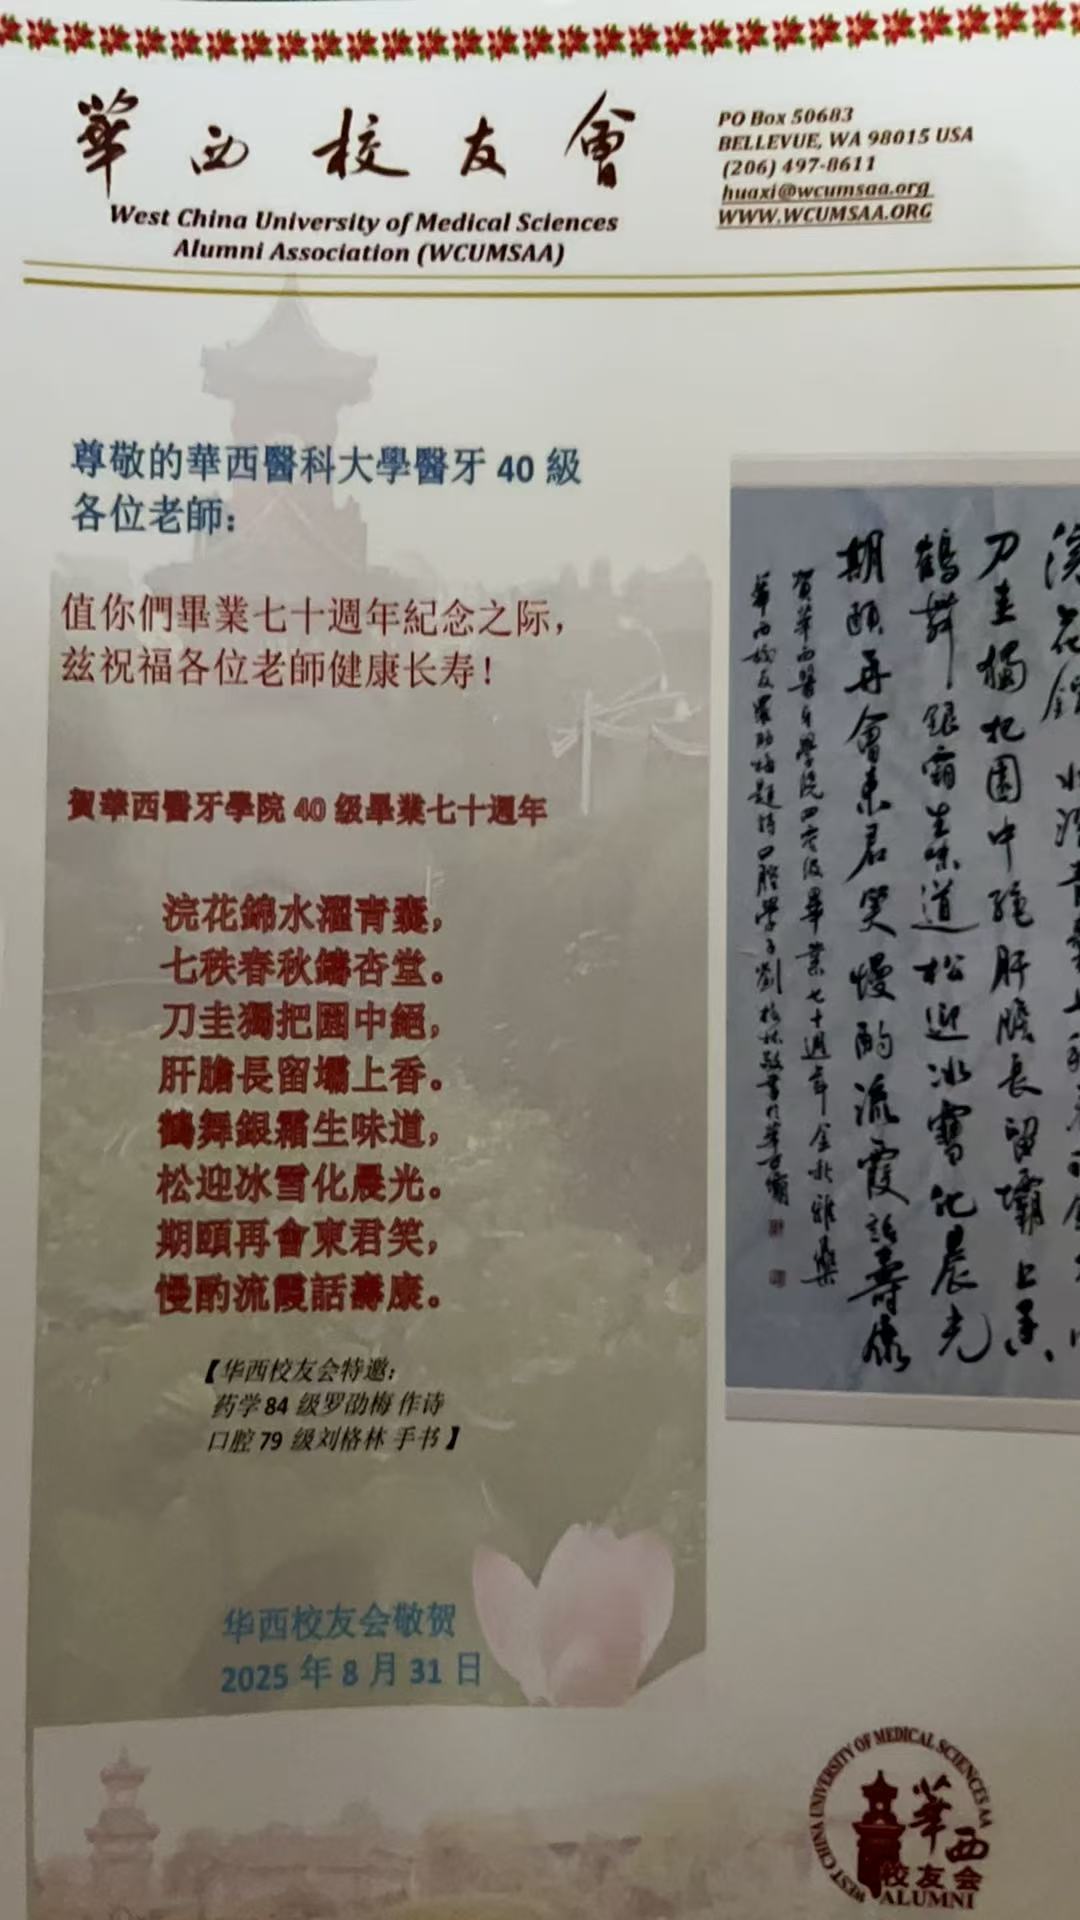 華西校友會
West China University of Medical Sciences
Alumni Association (WCUMSAA)
PO Box 50683
BELLEVUE, WA 98015 USA
(206) 497-8611
huaxi@wcumsaa.org
WWW.WCUMSAA.ORG
尊敬的華西醫科大學醫牙 40 級
各位老師:
值你們畢業七十週年紀念之际,
兹祝福各位老師健康长寿!
賀華西醫牙學院 40 级畢業七十週年
浣花錦水濯青囊,
七秩春秋鑄杏堂。
刀圭獨把園中絕,
肝膽長留壩上香。
鶴舞銀霜生味道,
松迎冰雪化晨光。
期頤再會東君笑,
慢酌流霞話壽康。
【华西校友会特邀:
药学 84 级罗劭梅 作诗
口腔 79 级刘格林 手书】
华西校友会敬贺
2025 年 8 月 31 日
浣花錦水濯青囊
刀圭獨把園中絕肝膽長留壩上香
鶴舞銀霜生味道松迎冰雪化晨光
期頤再會東君笑慢酌流霞話壽康
賀華西醫牙學院四零级畢業七十週年
華西校友
WEST CHINA UNIVERSITY OF MEDICAL SCIENCES AA
華西
校友会
ALUMNI